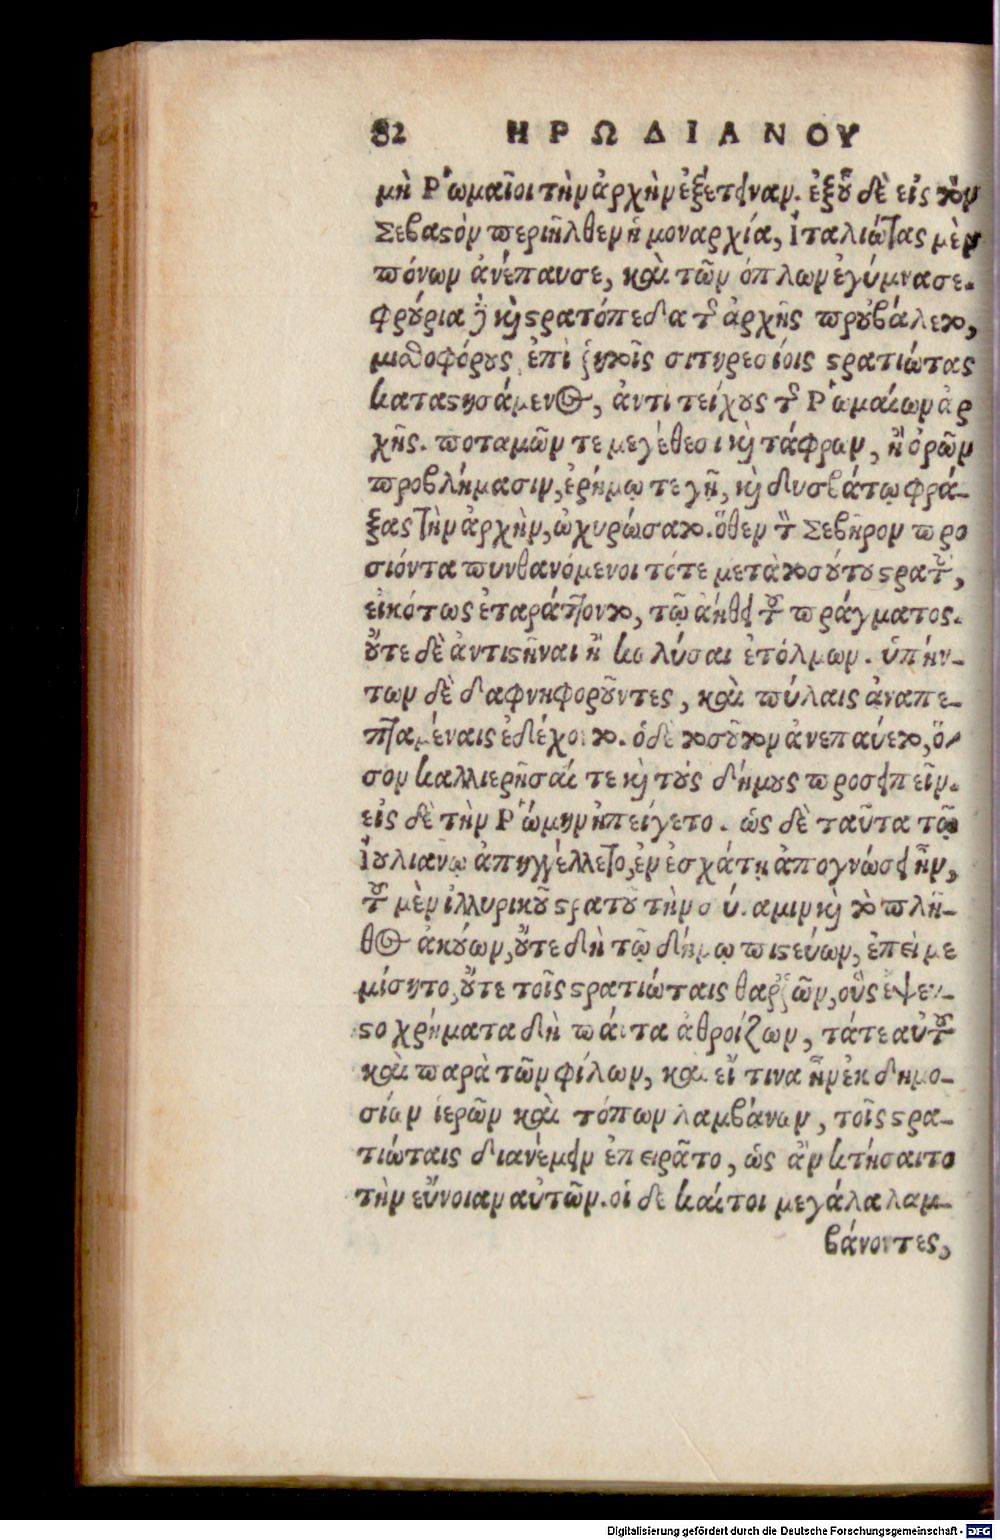 82 ΗΡΩΔΙΑΝΟΥ
μὴ Ῥωμαῖοι τὴν ἀρχὴν ἐξέτειναν. ἐξοῦ δὲ εἰς τὸν
Σεβαστὸν περιῆλθεν ἡ μοναρχία, Ἰταλιώτας μὲν
πόνων ἀνέπαυσε, καὶ τῶν ὅπλων ἐγύμνασε.
φρούρια δὲ καὶ στρατόπεδα τῆς ἀρχῆς προὐβάλετο,
μισθοφόρους ἐπὶ ῥητοῖς σιτηρεσίοις στρατιώτας
καταστησάμενος, ἀντὶ τείχους τῆς Ῥωμαίων ἀρ
χῆς. ποταμῶν τε μεγέθεσι καὶ τάφρων, ἢ ὀρῶν
προβλήμασιν, ἐρήμῳ τε γῇ, καὶ δυσβάτῳ φρά-
ξας τὴν ἀρχὴν, ὠχυρώσατο. ὅθεν τὸν Σεβῆρον προ
σιόντα πυνθανόμενοι τότε μετὰ τοσούτου στρατοῦ,
εἰκότως ἐταράττοντο, τῷ ἀήθει τοῦ πράγματος.
οὔτε δὲ ἀντιστῆναι ἢ κωλύσαι ἐτόλμων. ὑπήν-
των δὲ δαφνηφοροῦντες, καὶ πύλαις ἀναπε-
πταμέναις ἐδέχοντο. ὁ δὲ τοσοῦτον ἀνεπαύετο, ὅ-
σον καλλιερῆσαί τε καὶ τοὺς δήμους προσειπεῖν.
εἰς δὲ τὴν Ῥώμην ἠπείγετο. ὡς δὲ ταῦτα τῷ
Ἰουλιανῷ ἀπηγγέλλετο, ἐν ἐσχάτῃ ἀπογνώσει ἦν,
τοῦ μὲν ἰλλυρικοῦ στρατοῦ τὴν δύναμιν καὶ τὸ πλῆ-
θος ἀκούων, οὔτε δὴ τῷ δήμῳ πιστεύων, ἐπεὶ με
μίσητο, οὔτε τοῖς στρατιώταις θαρρῶν, οὓς ἔψευ-
στο χρήματα δὴ πάντα ἀθροίζων, τά τε αὐτοῦ
καὶ παρὰ τῶν φίλων, καὶ εἴ τινα ἦν ἐκ δημο-
σίων ἱερῶν καὶ τόπων λαμβάνων, τοῖς στρα-
τιώταις διανέμειν ἐπειρᾶτο, ὡς ἂν κτήσαιτο
τὴν εὔνοιαν αὐτῶν. οἱ δὲ καίτοι μεγάλα λαμ-
βάνοντες,
Digitalisierung gefördert durch die Deutsche Forschungsgemeinschaft - DFG